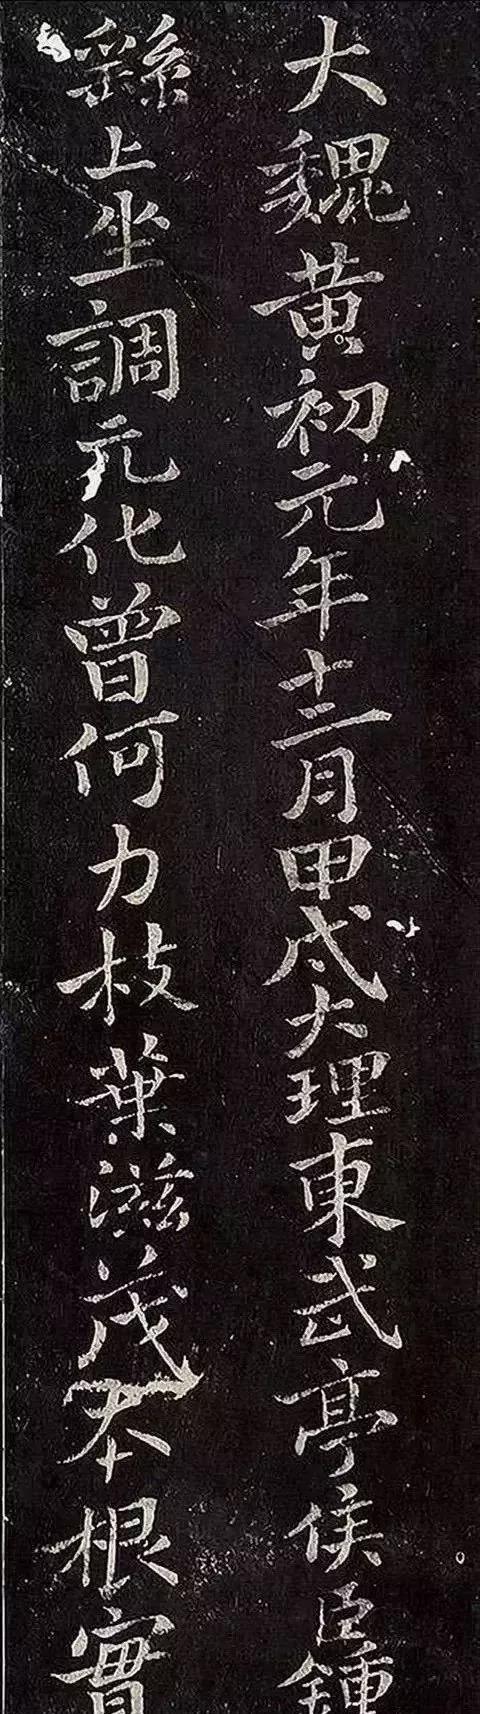 大魏黃初元年十二月甲戌大理東武亭侯臣鍾
繇上坐調元化曾何力枝葉滋茂本根實